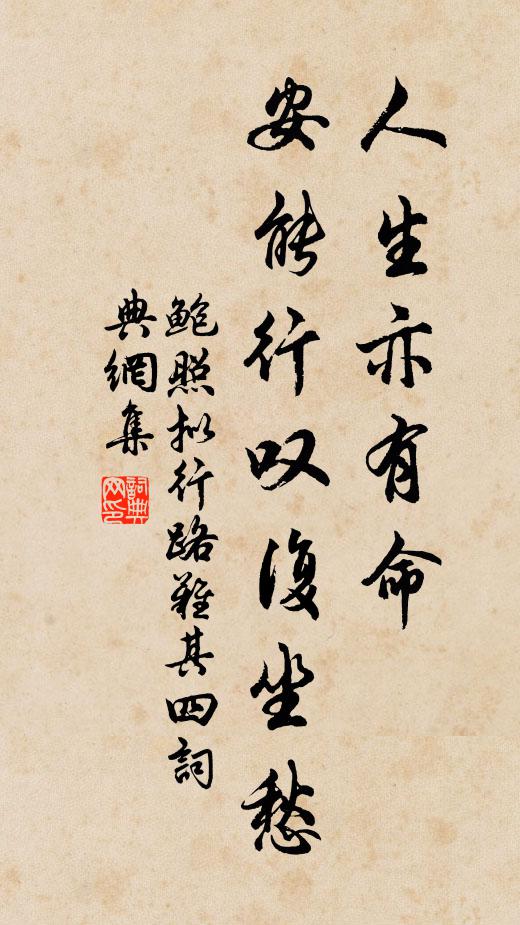 人生亦有命
安能行叹復坐愁
鲍照拟行路难其四詞
典網集
詞典网印